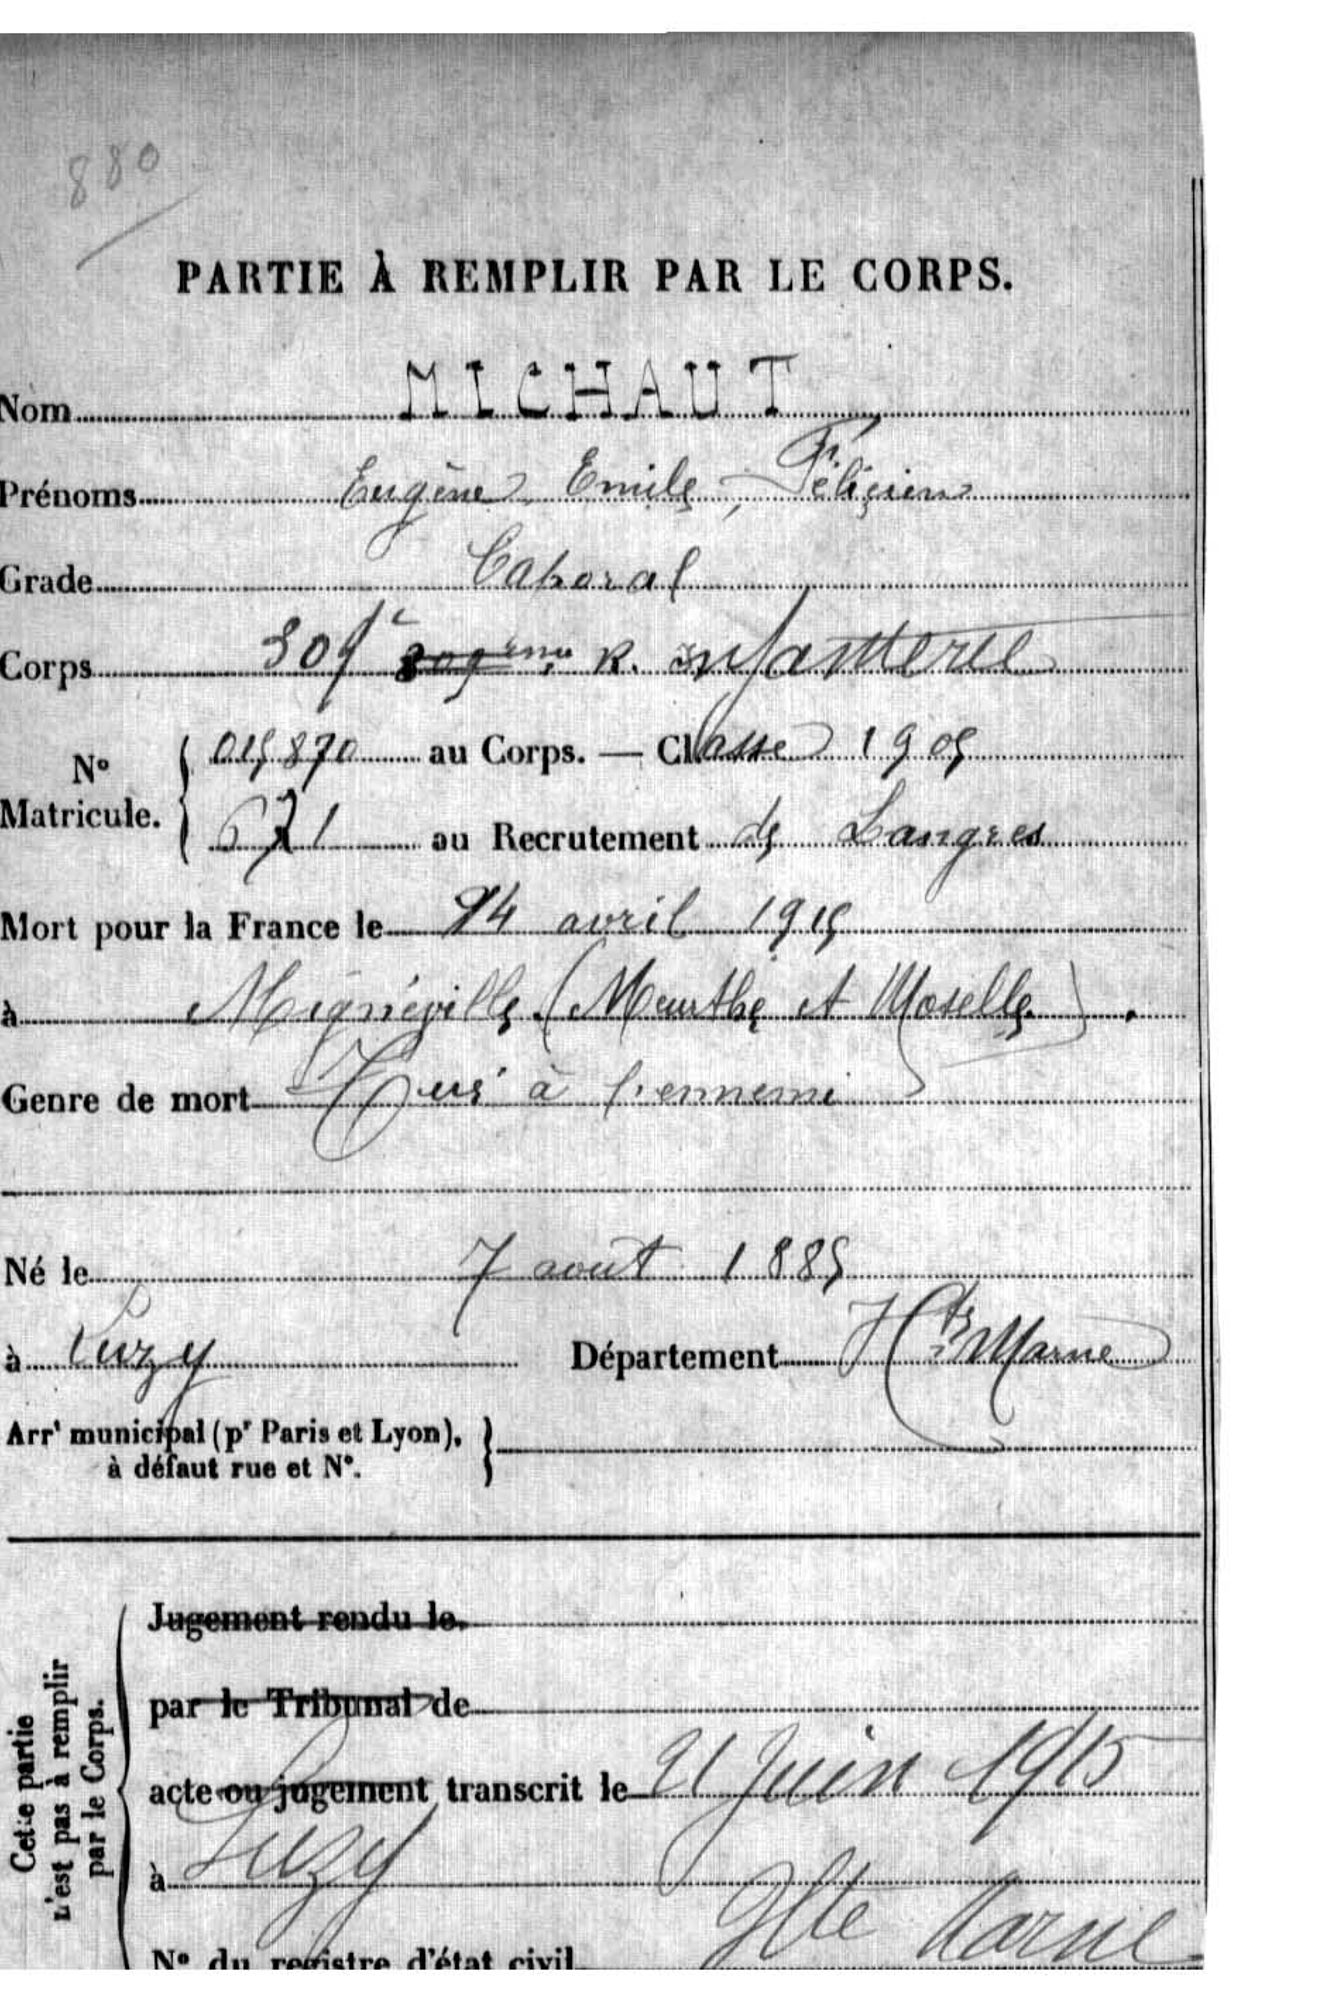 880
PARTIE À REMPLIR PAR LE CORPS.
Nom MICHAUT
Prénoms Eugène, Emile, Félicien
Grade Caporal
Corps 309e 309ème R. Infanterie
No Matricule. { 015870 au Corps. — Cl. Classe 1905
671 au Recrutement de Langres
Mort pour la France le 14 avril 1915
à Mignéville (Meurthe et Moselle).
Genre de mort Tué à l'ennemi
Né le 7 août 1885
à Luzy Département Hte Marne
Arrt municipal (pr Paris et Lyon), à défaut rue et N°. }
Cette partie n'est pas à remplir par le Corps.
Jugement rendu le
par le Tribunal de
acte ou jugement transcrit le 21 Juin 1915
à Luzy
Hte Marne
N° du registre d'état civil